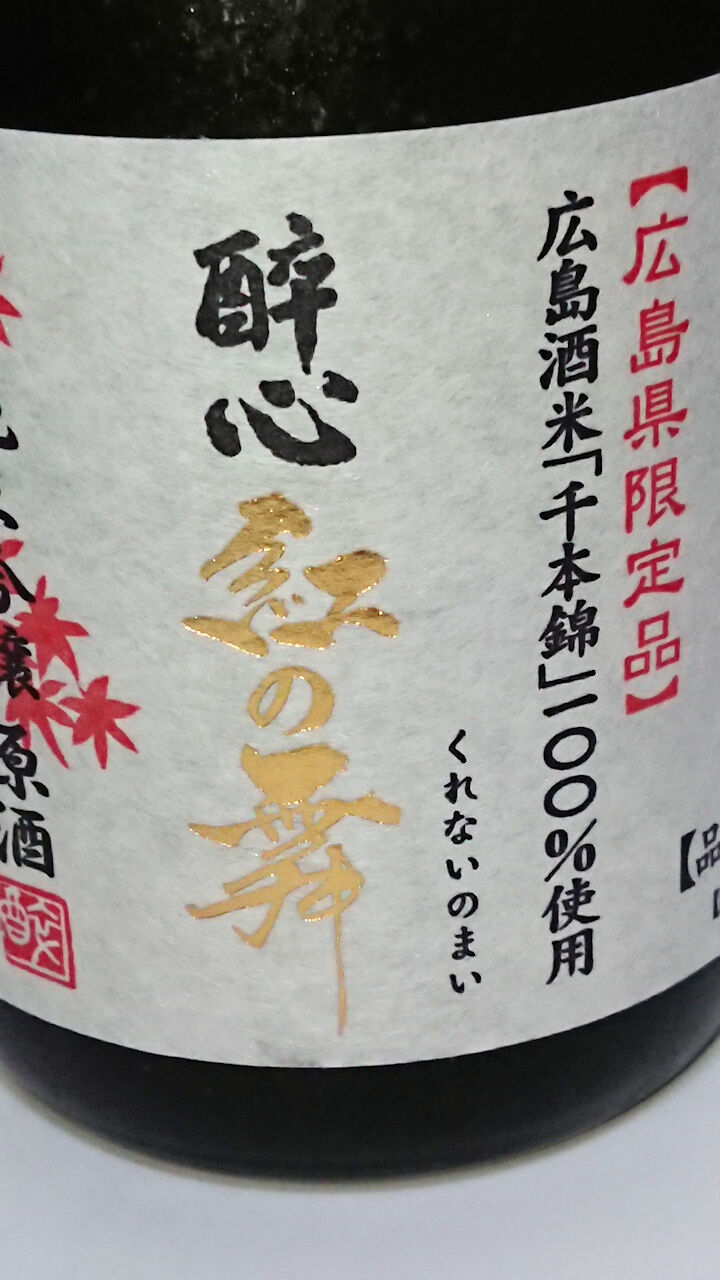 【広島県限定品】
広島酒米「千本錦」一〇〇％使用
くれないのまい
醉心
紅の舞
吟醸原酒
【品